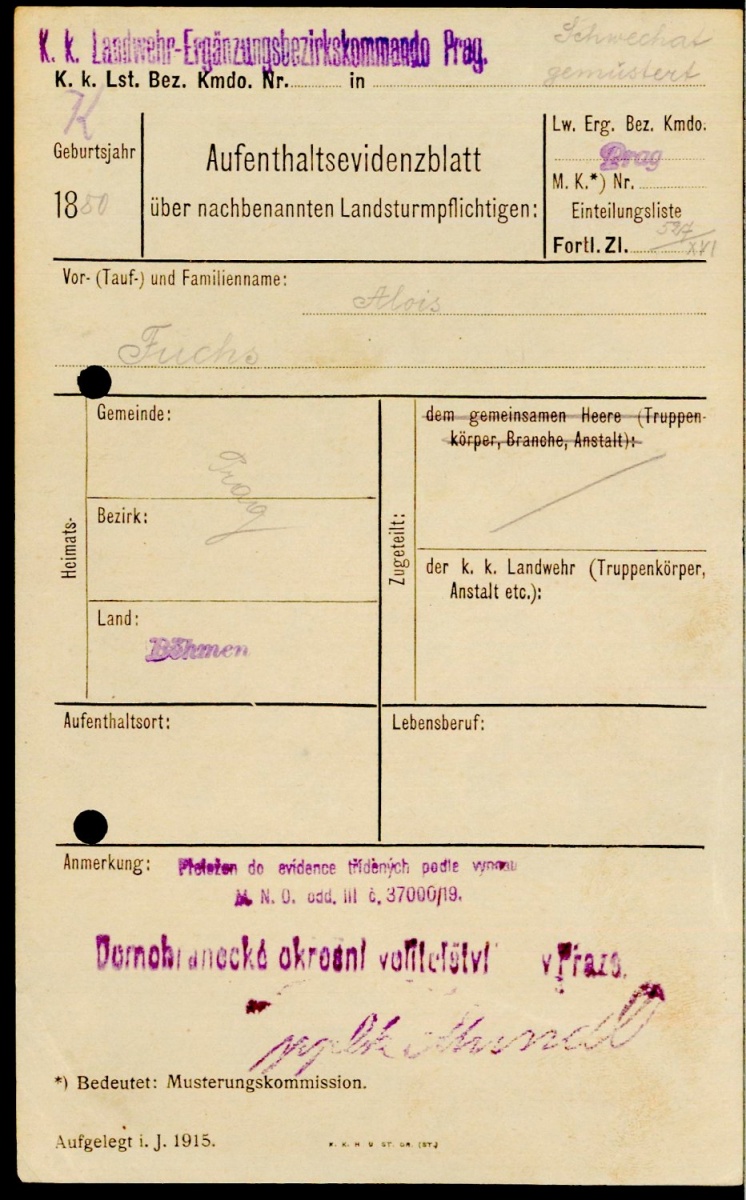 K. k. Landwehr-Ergänzungsbezirkskommando Prag.
Schwechat
gemustert
K. k. Lst. Bez. Kmdo. Nr. in
K
Geburtsjahr
1880
Aufenthaltsevidenzblatt
über nachbenannten Landsturmpflichtigen:
Lw. Erg. Bez. Kmdo.
Prag
M. K.*) Nr.
Einteilungsliste
Fortl. Zl. 527/XVI
Vor- (Tauf-) und Familienname:
Alois
Fuchs
Heimats-
Gemeinde:
Prag
Bezirk:
Land:
Böhmen
Zugeteilt:
dem gemeinsamen Heere (Truppen-
körper, Branche, Anstalt):
der k. k. Landwehr (Truppenkörper,
Anstalt etc.):
Aufenthaltsort:
Lebensberuf:
Anmerkung:
Přeložen do evidence tříděných podle vynosu
M. N. O. odd. III č. 37000/19.
Domobranecké okresní velitelství v Praze.
*) Bedeutet: Musterungskommission.
Aufgelegt i. J. 1915.
K. K. H U ST. DR. (ST.)